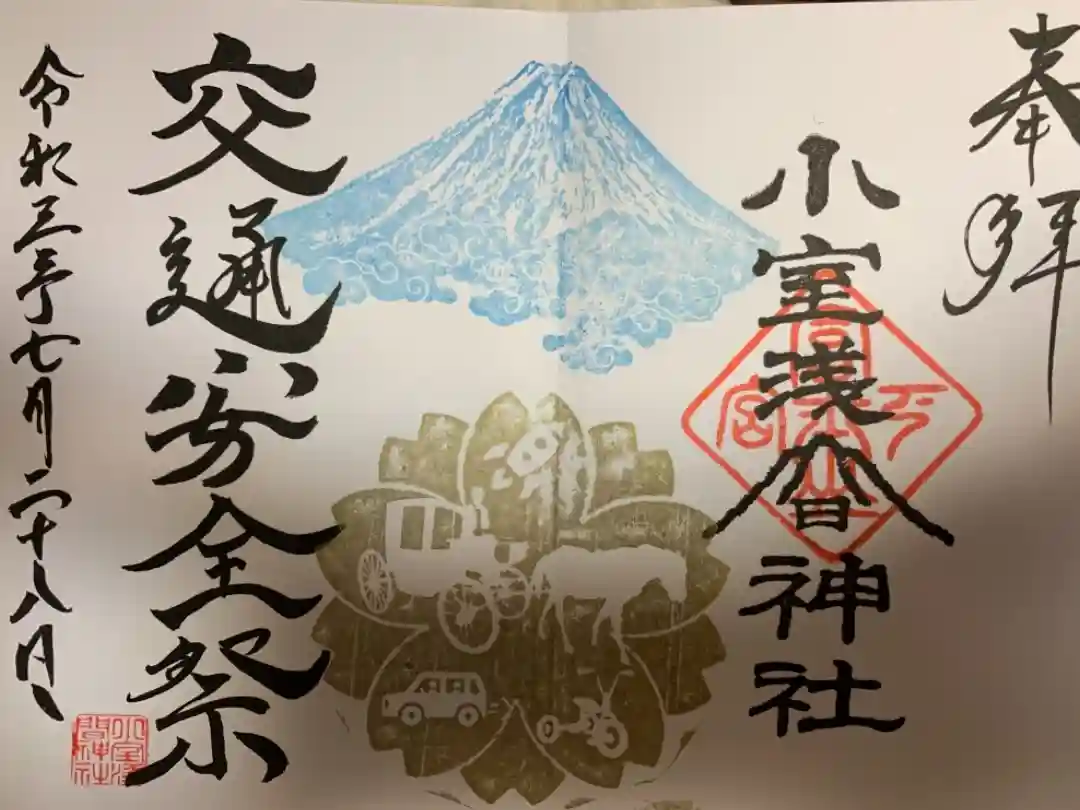 奉拝
小室浅間神社
交通安全祭
令和三年七月二十八日
小室浅
間神社